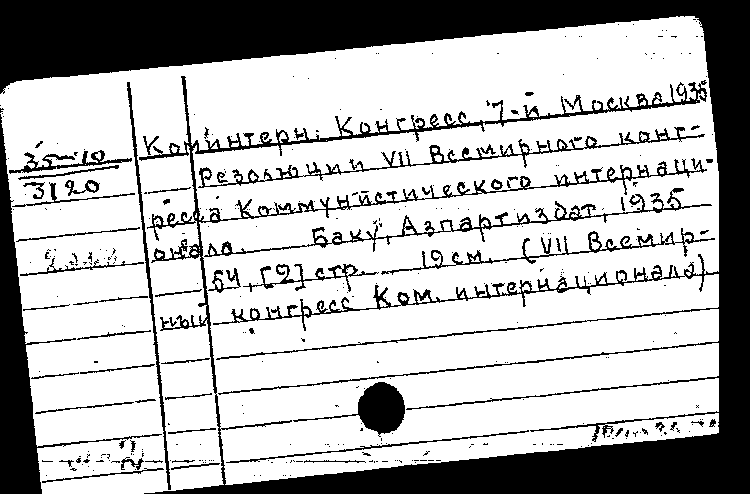 Коминтерн. Конгресс, 7-й. Москва 1935
35-10
3120
Резолюции VII Всемирного конг-
ресса Коммунистического интернаци-
онала. Баку, Азпартиздат, 1935
64, [2] стр. 19 см. (VII Всемир-
ный конгресс Ком. интернационала)
2